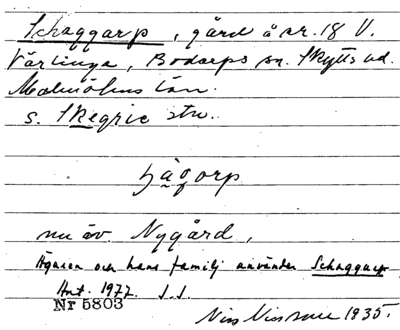 Schaggarp, gård å nr. 18 V.
Värlinge, Bodarps sn. Skytts hd.
Malmöhus län.
s. Skegrie stn.
hågorp
nu äv. Nygård,
Ägaren och hans familj använder Schaggarp
Ant. 1977. I.I.
Nr 5803
Nils Nilsson 1935.